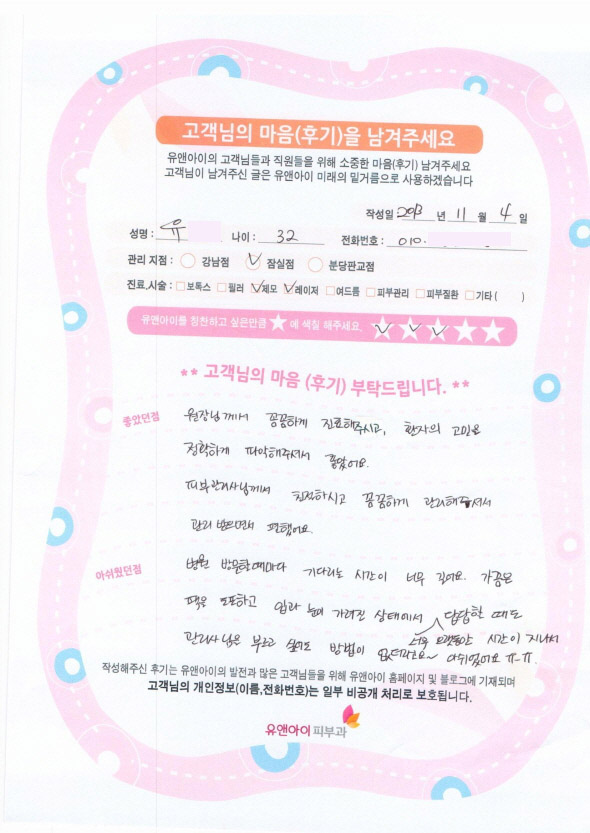 고객님의 마음(후기)을 남겨주세요
유앤아이의 고객님들과 직원들을 위해 소중한 마음(후기) 남겨주세요
고객님이 남겨주신 글은 유앤아이 미래의 밑거름으로 사용하겠습니다
작성일 2013 년 11 월 4 일
성명 : 유 나이 : 32 전화번호 : 010.
관리 지점 : 강남점 잠실점 분당판교점
진료,시술 : 보톡스 필러 제모 레이저 여드름 피부관리 피부질환 기타 ( )
유앤아이를 칭찬하고 싶은만큼 ★ 에 색칠 해주세요.
** 고객님의 마음 (후기) 부탁드립니다. **
좋았던점 원장님께서 꼼꼼하게 진료해주시고, 환자의 고민을
정확하게 파악해주셔서 좋았어요.
피부관리사님께서 친절하시고 꼼꼼하게 관리해주셔서
관리 받으면서 편했어요.
아쉬웠던점 병원 방문할때마다 기다리는 시간이 너무 길어요. 가끔은
팩을 도포하고 입과 눈이 가려진 상태에서 답답할 때도
관리사님을 부르고 싶어도 방법이 없더라구요~ 너무 오랫동안 시간이 지나서
아쉬웠어요 ㅠㅠ.
작성해주신 후기는 유앤아이의 발전과 많은 고객님들을 위해 유앤아이 홈페이지 및 블로그에 기재되며
고객님의 개인정보(이름,전화번호)는 일부 비공개 처리로 보호됩니다.
유앤아이 피부과